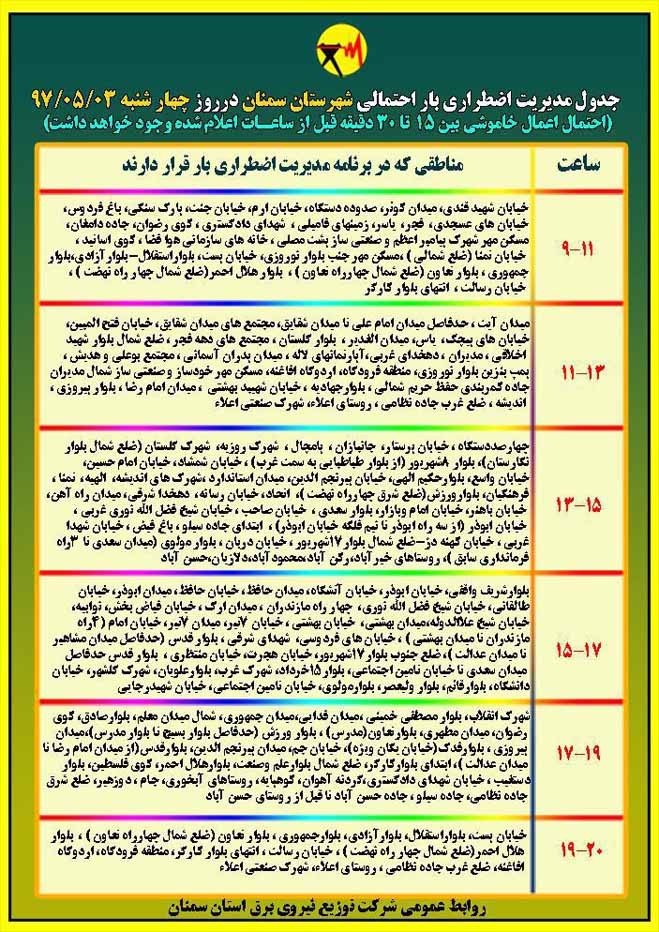 جدول مدیریت اضطراری بار احتمالی شهرستان سمنان درروز چهار شنبه ۹۷/۰۵/۰۳
(احتمال اعمال خاموشی بین ۱۵ تا ۳۰ دقیقه قبل از ساعات اعلام شده وجود خواهد داشت)
ساعت
مناطقی که در برنامه مدیریت اضطراری بار قرار دارند
۹-۱۱
خیابان شهید قندی، میدان کوثر، صدوده دستگاه، خیابان ارم، خیابان جنت، پارک سنگی، باغ فردوس،
خیابان های عسجدی، فجر، یاسر، زمینهای فامیلی ، شهدای دادگستری ، کوی رضوان، جاده دامغان،
مسکن مهر شهرک پیامبر اعظم و صنعتی ساز پشت مصلی ، خانه های سازمانی هوا فضا ، کوی اساتید ،
خیابان تمنا (ضلع شمالی ) ،مسکن مهر جنب بلوار نوروزی، خیابان بست، بلواراستقلال-بلوارآزادی،بلوار
جمهوری ، بلوار تعاون (ضلع شمال چهارراه تعاون ) ، بلوار هلال احمر(ضلع شمال چهار راه نهضت ) ،
خیابان رسالت ، انتهای بلوار کارگر
۱۱-۱۳
میدان آیت ، حدفاصل میدان امام علی تا میدان شقایق، مجتمع های میدان شقایق، خیابان فتح المبین،
خیابان های پیچک، یاس، میدان الغدیر ، بلوار گلستان ، مجتمع های دهه فجر ، ضلع شمال بلوار شهید
اخلاقی ، مدیران ، دهخدای غربی،آپارتمانهای لاله ، میدان پدران آسمانی ، مجتمع بوعلی و هدیش ،
پمپ بنزین بلوار نوروزی، منطقه فرودگاه، اردوگاه افاغنه، مسکن مهر خودساز و صنعتی ساز شمال مدیران
جاده کمربندی حفظ حریم شمالی ، بلوارجهادیه ، خیابان شهید بهشتی ، میدان امام رضا ، بلوار پیروزی ،
اندیشه ، ضلع غرب جاده نظامی ، روستای اعلاء، شهرک صنعتی اعلاء
۱۳-۱۵
چهارصددستگاه ، خیابان پرستار، جانبازان ، پامچال ، شهرک روزیه، شهرک گلستان (ضلع شمال بلوار
نگارستان)، بلوار ۸شهریور (از بلوار طباطبایی به سمت غرب) ، خیابان شمشاد، خیابان امام حسین،
خیابان واسع، بلوارحکیم الهی، خیابان پیرنجم الدین، میدان استاندارد، شهرک های اندیشه، الهیه، تمنا ،
فرهنگیان، بلوارورزش(ضلع شرق چهارراه نهضت )، اتحاد، خیابان رسانه، دهخدا شرقی، میدان راه آهن،
خیابان باهنر، خیابان امام وبازار، بلوار سعدی ، خیابان صاحب ، خیابان شیخ فضل الله نوری غربی ،
خیابان ابوذر (از سه راه ابوذر تا نیم فلکه خیابان ابوذر) ، ابتدای جاده سیلو ، باغ فیض ، خیابان شهدا
غربی ، خیابان کهنه دژ-ضلع شمال بلوار ۱۷شهریور ، خیابان دربان ، بلوار مولوی (میدان سعدی تا ۳راه
فرمانداری سابق )، روستاهای خیرآباد،رکن آباد،محمودآباد،دلازیان،حسن آباد
۱۵-۱۷
بلوارشریف واقفی، خیابان ابوذر، خیابان آتشگاه، میدان حافظ ، خیابان حافظ، میدان ابوذر، خیابان
طالقانی، خیابان شیخ فضل الله نوری، چهار راه مازندران ، میدان ارک ، خیابان فیاض بخش، توابیه،
خیابان شیخ علاالدوله،میدان بهشتی، خیابان بهشتی ، خیابان ۷تیر، میدان ۷تیر، خیابان امام (۴راه
مازندران تا میدان بهشتی ) ، خیابان های فردوسی، شهدای شرقی ، بلوار قدس (حدفاصل میدان مشاهیر
تا میدان عدالت )، ضلع جنوب بلوار ۱۷شهریور، خیابان هجرت، خیابان منتظری ، بلوار قدس حدفاصل
میدان سعدی تا خیابان تامین اجتماعی، بلوار ۱۵خرداد، شهرک غرب، بلوارعلویان، شهرک گلشهر، خیابان
دانشگاه، بلوارقائم، بلوار ولیعصر، بلوارمولوی، خیابان تامین اجتماعی، خیابان شهیدرجایی
۱۷-۱۹
شهرک انقلاب، بلوار مصطفی خمینی ، میدان فدایی،میدان جمهوری، شمال میدان معلم، بلوارصادق، کوی
رضوان، میدان مطهری، بلوارتعاون(مدرس) ، بلوار ورزش (حدفاصل بلوار بسیج تا بلوار مدرس)،میدان
پیروزی ، بلوارفدک(خیابان یگان ویژه)، خیابان جم، میدان پیرنجم الدین، بلوارقدس(از میدان امام رضا تا
میدان عدالت )، ابتدای بلوارکارگر، ضلع شمال بلوارعلم وصنعت، بلوارهلال احمر، کوی فلسطین، بلوار
دستغیب ، خیابان شهدای دادگستری،گردنه آهوان، کوهپایه، روستاهای آبخوری، جام ، دوزهیر، ضلع شرق
جاده نظامی، جاده سیلو ، جاده حسن آباد تا قبل از روستای حسن آباد
۱۹-۲۰
خیابان بست، بلواراستقلال، بلوارآزادی، بلوارجمهوری ، بلوار تعاون (ضلع شمال چهارراه تعاون ) ، بلوار
هلال احمر(ضلع شمال چهار راه نهضت ) ، خیابان رسالت ، انتهای بلوار کارگر، منطقه فرودگاه، اردوگاه
افاغنه، ضلع غرب جاده نظامی ، روستای اعلاء، شهرک صنعتی اعلاء
روابط عمومی شرکت توزیع نیروی برق استان سمنان